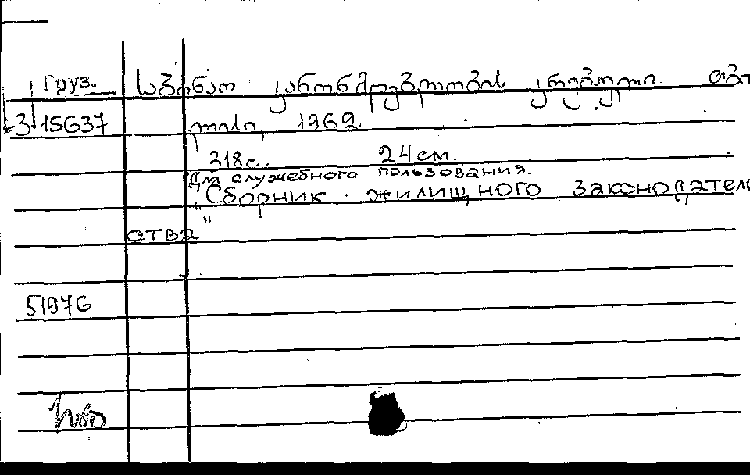 Груз. საბინაო კანონმდებლობის კრებული. თბი
3-15637 ლისი, 1969.
218с. 24см.
Для служебного пользования.
"Сборник жилищного законодатель
ства"
51976